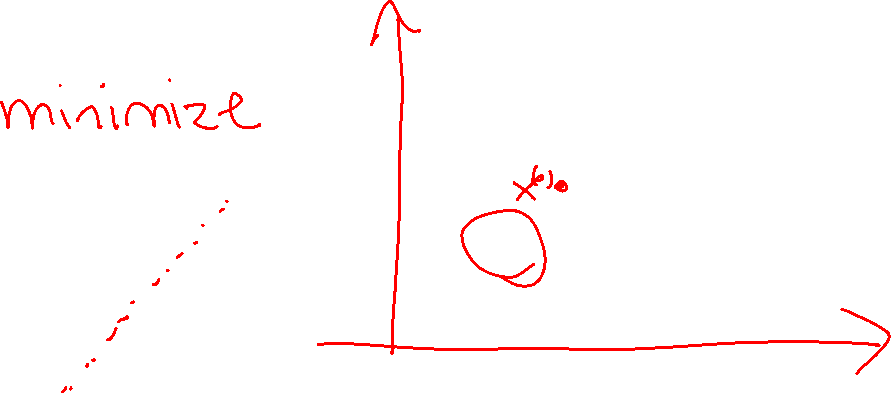 minimize
x⁽⁰⁾